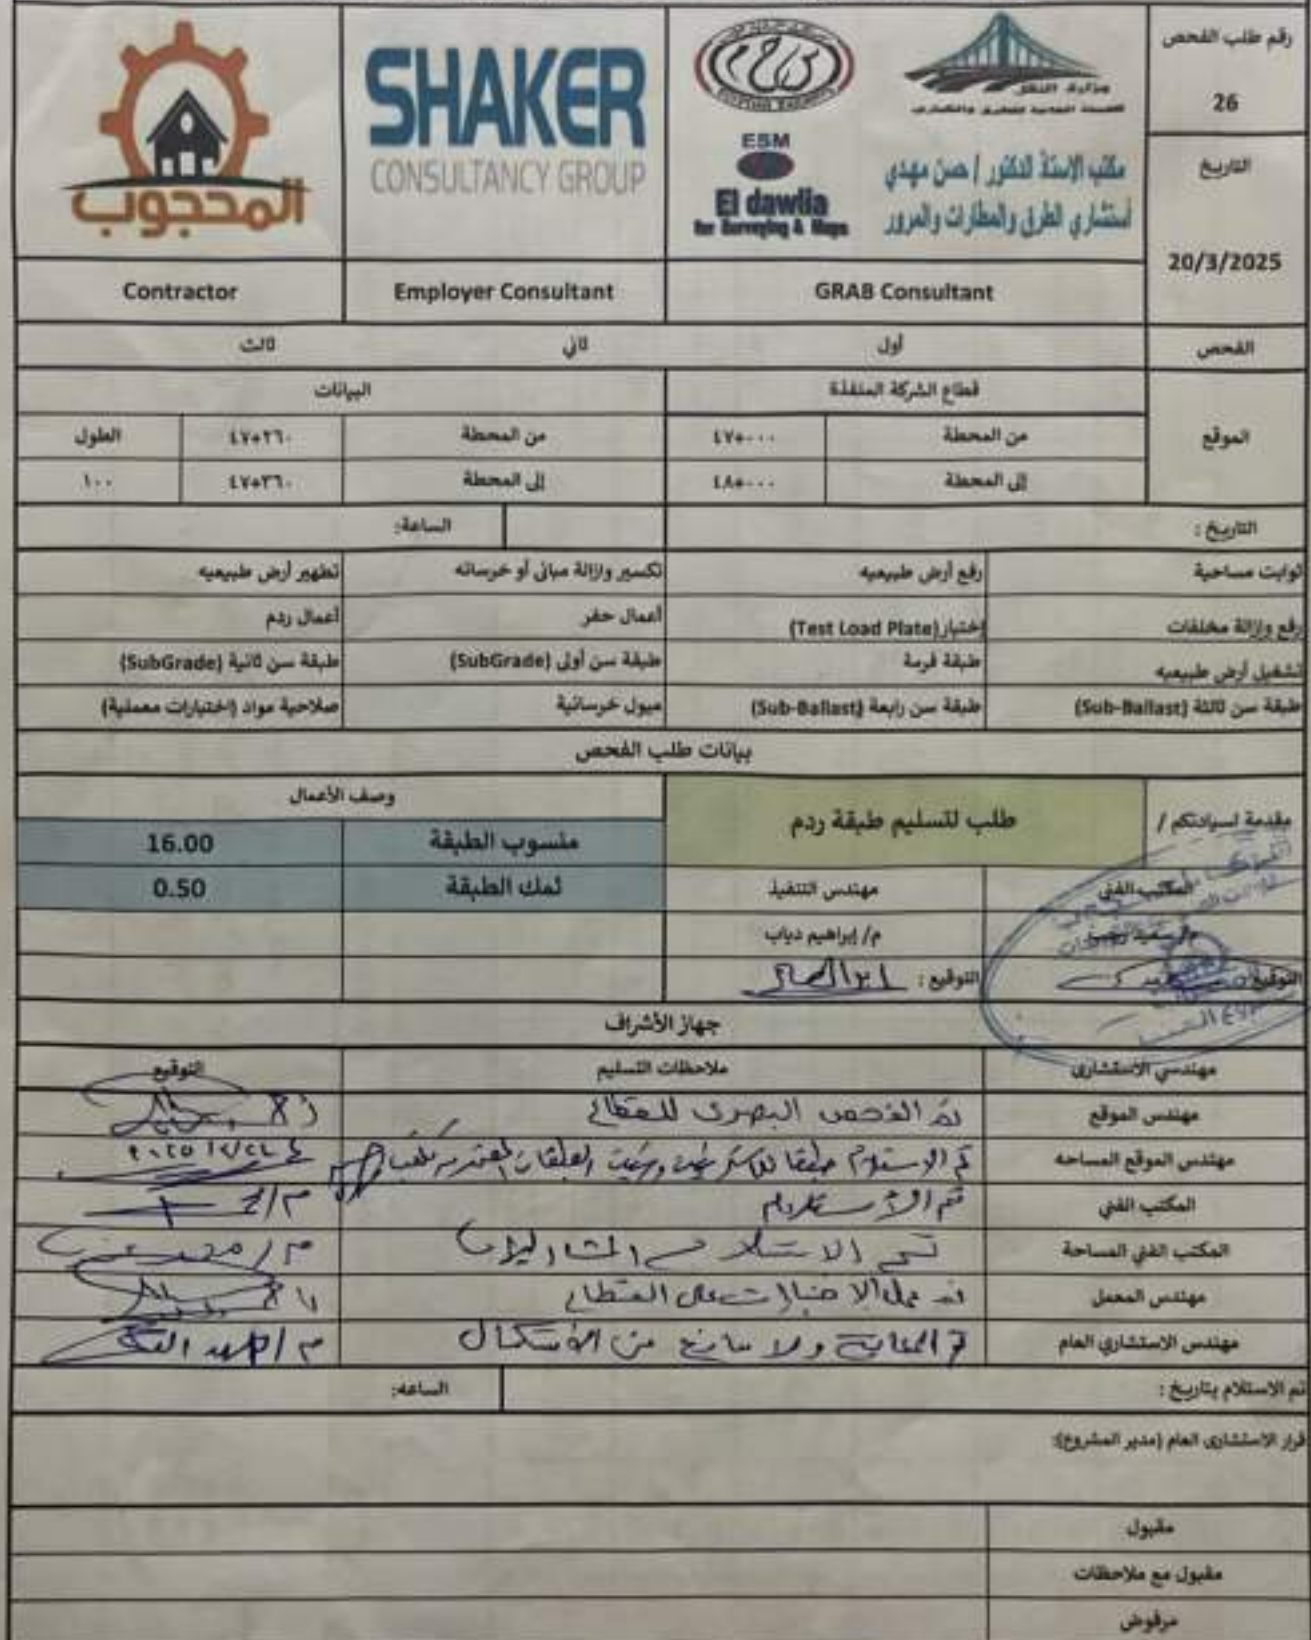 رقم طلب الفحص
26
التاريخ
20/3/2025
وزارة النقل
ESM
El dawlia
for Surveying & Maps
مكتب الاستاذ الدكتور / حسن مهدي
أستشاري الطرق والمطارات والمرور
SHAKER
CONSULTANCY GROUP
المحجوب
GRAB Consultant
Employer Consultant
Contractor
الفحص أول ثاني ثالث
الموقع
قطاع الشركة المنفذة البيانات
من المحطة ٤٧+٠٠٠ من المحطة ٤٧+٢٦٠ الطول
إلى المحطة ٤٨+٠٠٠ إلى المحطة ٤٧+٣٦٠ ١٠٠
التاريخ : الساعة:
ثوابت مساحية رفع أرض طبيعيه تكسير وازالة مبانى أو خرسانه تطهير أرض طبيعيه
رفع وازالة مخلفات إختبار(Test Load Plate) أعمال حفر أعمال ردم
تشغيل أرض طبيعيه طبقة فرمة طبقة سن أولى (SubGrade) طبقة سن ثانية (SubGrade)
طبقة سن ثالثة (Sub-Ballast) طبقة سن رابعة (Sub-Ballast) ميول خرسانية صلاحية مواد (اختبارات معملية)
بيانات طلب الفحص
مقدمة لسيادتكم / طلب لتسليم طبقة ردم وصف الأعمال
منسوب الطبقة 16.00
المكتب الفنى مهندس التنفيذ ثمك الطبقة 0.50
م/ إبراهيم دياب
التوقيع التوقيع :
جهاز الأشراف
مهندسي الاستشارى ملاحظات التسليم التوقيع
مهندس الموقع تم الفحص البصرى للقطاع
مهندس الموقع المساحه تم الاستلام طبقا
المكتب الفني تم الأستلام
المكتب الفني المساحة تم الاستلام
مهندس المعمل تم عمل الاختبارات على القطاع
مهندس الاستشاري العام تم المعاينة ولا مانع من الأستكمال
تم الاستلام بتاريخ : الساعه:
قرار الاستشارى العام (مدير المشروع):
مقبول
مقبول مع ملاحظات
مرفوض